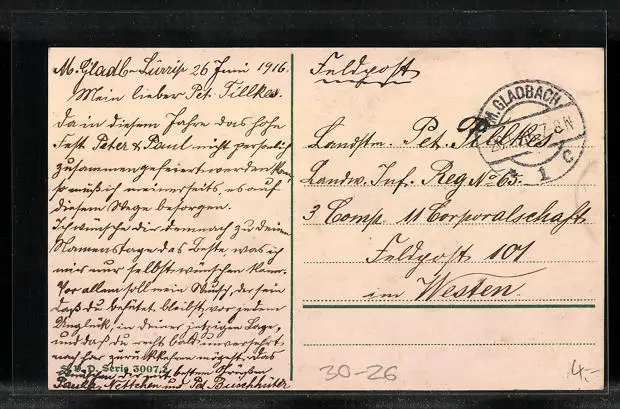 M. Gladb-Lürrip 26 Juni 1916.
Mein lieber Pet. Tillkes.
Da in diesem Jahre das hohe
Fest Peter & Paul nicht persönlich
zusammen gefeiert werden kann,
so muß ich meinerseits, es auf
diesem Wege besorgen.
Ich wünsche dir demnach zu deinem
Namenstage das Beste, was ich
mir nur selbst wünschen kann.
Vor allem soll mein Wunsch, der sein
daß du behütet bleibst, vor jedem
Unglück, in deiner jetzigen Lage,
und daß du recht bald unversehrt
nach hier zurückkehren mögest. Das
wünschen dir mit besten Grüßen
Paula, Nettchen und Pet Buschhüter
S.V.D. Serie 3007.
Feldpost
M. GLADBACH
7-8N
1 c
Landstm. Pet. Tillkes
Landw. Inf. Reg No 65.
3 Comp. 11 Corporalschaft
Feldpost 101
im Westen.
30-26
4.-